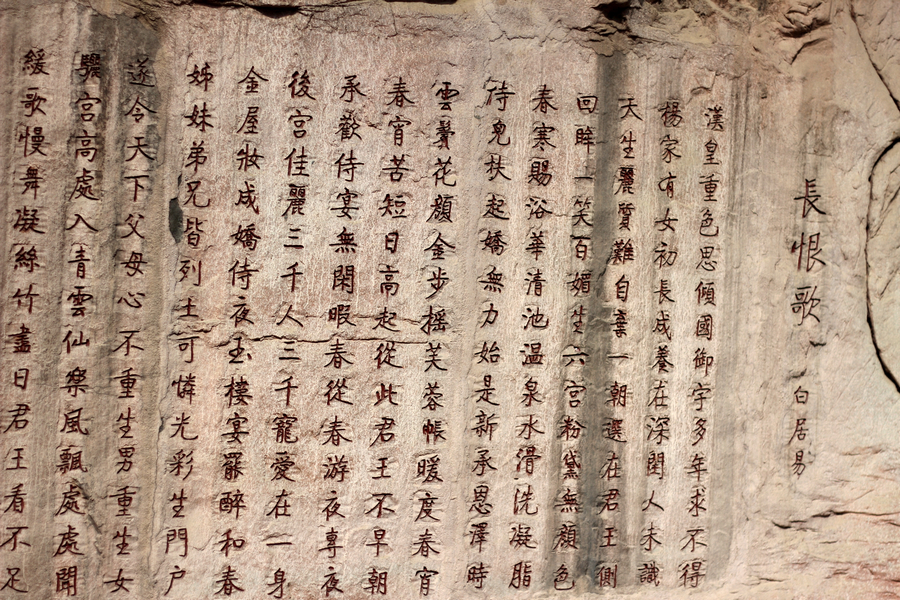 長恨歌 白居易
漢皇重色思傾國御宇多年求不得
楊家有女初長成養在深閨人未識
天生麗質難自棄一朝選在君王側
回眸一笑百媚生六宮粉黛無顏色
春寒賜浴華清池溫泉水滑洗凝脂
侍兒扶起嬌無力始是新承恩澤時
雲鬢花顏金步搖芙蓉帳暖度春宵
春宵苦短日高起從此君王不早朝
承歡侍宴無閑暇春從春游夜專夜
後宮佳麗三千人三千寵愛在一身
金屋妝成嬌侍夜玉樓宴罷醉和春
姊妹弟兄皆列土可憐光彩生門戶
遂令天下父母心不重生男重生女
驪宮高處入青雲仙樂風飄處處聞
緩歌慢舞凝絲竹盡日君王看不足